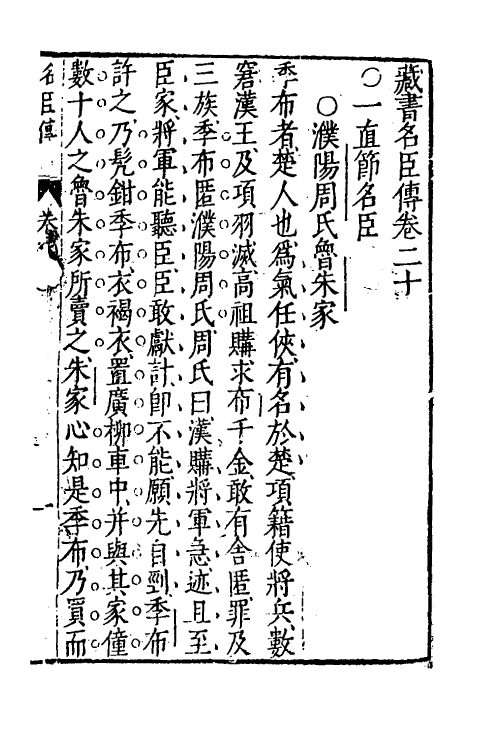 藏書名臣傳卷二十
○一直節名臣
○濮陽周氏魯朱家
季布者楚人也爲氣任俠有名於楚項籍使將兵數
窘漢王及項羽滅高祖購求布千金敢有舍匿罪及
三族季布匿濮陽周氏周氏曰漢購將軍急迹且至
臣家將軍能聽臣臣敢獻計卽不能願先自剄季布
許之乃髠鉗季布衣褐衣置廣柳車中并與其家僮
數十人之魯朱家所賣之朱家心知是季布乃買而
名臣傳
卷
一